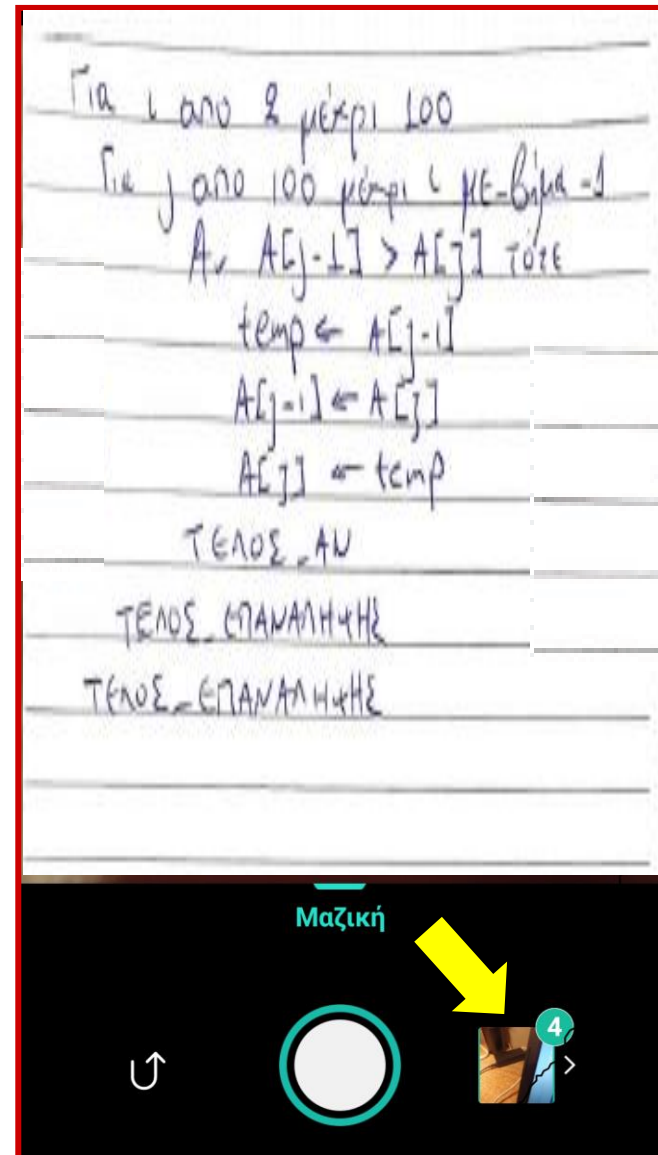 Για ι απο 2 μέχρι 100
Για j απο 100 μέχρι ι με_βήμα -1
Αν A[j-1] > A[j] τότε
temp ← A[j-1]
A[j-1] ← A[j]
A[j] ← temp
ΤΕΛΟΣ_ΑΝ
ΤΕΛΟΣ_ΕΠΑΝΑΛΗΨΗΣ
ΤΕΛΟΣ_ΕΠΑΝΑΛΗΨΗΣ
Μαζική
4